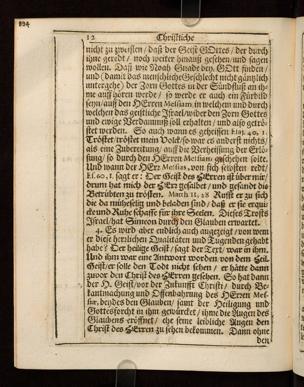 894
12 Christliche
nicht zu zweiflen / daß der Geist GOttes / der durch
ihne geredt / noch weiter hinauß gesehen / und sagen
wollen. Daß wie Noah Gnade bey GOtt funden /
und (damit das menschliche Geschlecht nicht gäntzlich
untergehe) der Zorn Gottes in der Sündfluß an ih-
me auffhören werde / so werde er auch ein Fürbild
seyn / auff den HErren Messiam, in welchem und durch
welchen das geistliche Israel / wider den Zorn Gottes
und ewige Verdamnuß soll erhalten / und also getrö-
stet werden. So auch wann es geheissen Esaj. 40. 1.
Tröstet / tröstet mein Volck / so war es anderst nichts /
als eine Zubereitung / auff die Verheissung der Erlö-
sung / so durch den HErren Messiam geschehen solte.
Und wann der HErr Messias, von sich selbsten redt /
Esa. 60. 1. sagt er: Der Geist des HErren ist über mir /
drum hat mich der HErr gesalbet / und gesandt die
Betrübten zu trösten. Matth. 11, 28 Rufft er zu sich
die da mühselig und beladen sind / daß er sie erqui-
cke und Ruhe schaffe für ihre Seelen. Dieses Trosts
Israel / hat Simeon durch den Glauben erwartet.
4. Es wird aber endlich auch angezeigt / von wem
er diese herrlichen Qualitäten und Tugenden gehabt
habe? Der heilige Geist / sagt der Text / war in ihm.
Und ihm war eine Antwort worden von dem Heil.
Geist / er solle den Todt nicht sehen / er hätte dann
zuvor den Christ des HErren gesehen. So hat dann
der H. Geist / vor der Zukunfft Christi / durch Be-
kantmachung und Offenbahrung des HErren Mes-
siæ, beydes den Glauben / samt der Heiligung und
Gottesforcht in ihm gewürcket / ihme die Augen des
Glaubens eröffnet / ehe seine leibliche Augen den
Christ des HErren zu sehen bekommen. Dann ohne
den